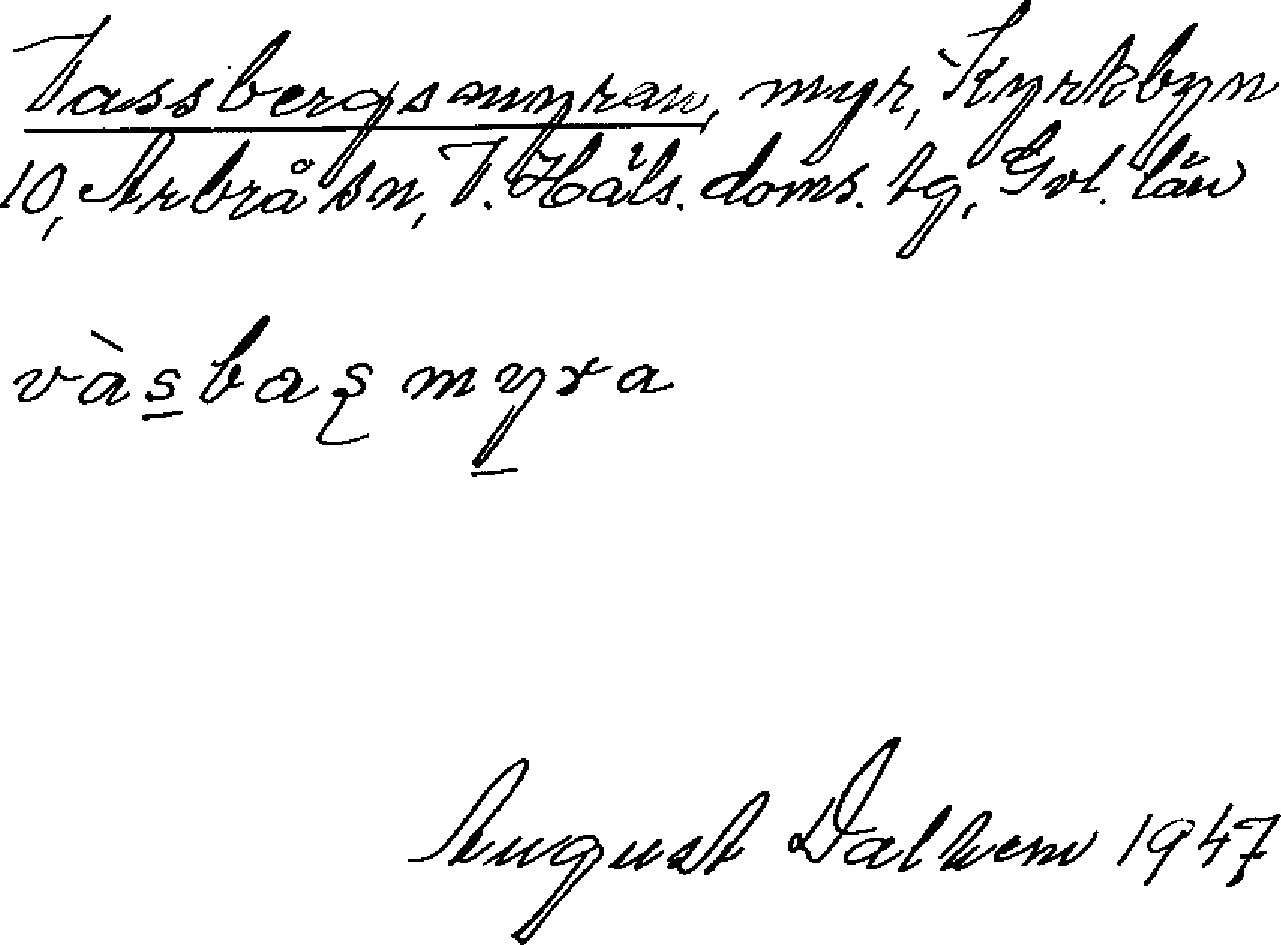 Vassbergsmyran, myr, Kyrkbyn
10, Arbrå sn, V. Häls. doms. tg, Gvl. län
vàsbaşmyra
August Dalhem 1947